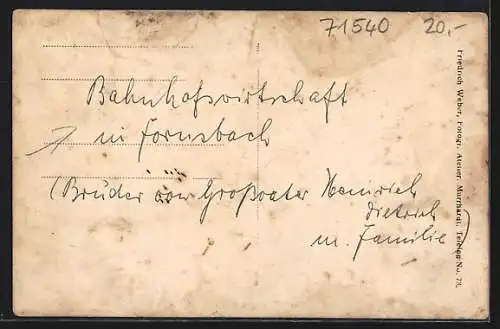 71540 20,-
Bahnhofswirtschaft
in Fornsbach
(Bruder von Großvater Heinrich
Dietrich
m. Familie)
Friedrich Weber, Fotogr. Atelier, Murrhardt, Teleph. No. 78.